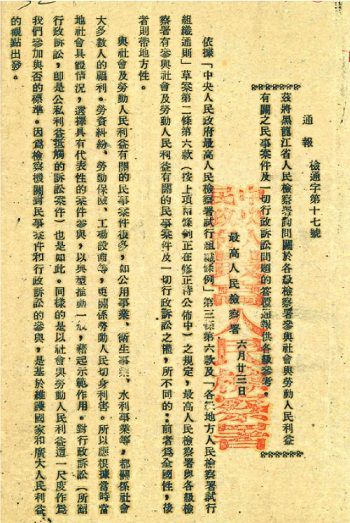 通報
檢通字第十七號
茲將黑龍江省人民檢察署詢問關於各級檢察署參與社會與勞動人民利益
有關之民事案件及一切行政訴訟問題的答覆通報供各級參考。
最高人民檢察署
六月廿三日
依據「中央人民政府最高人民檢察署試行組織條例」第三條第六款及「各級地方人民檢察署試行
組織通則」草案第二條第六款(按上項兩條例正在修正待公佈中)之規定,最高人民檢察署與各級檢
察署有參與社會及勞動人民利益有關的民事案件及一切行政訴訟之權,所不同的,前者為全國性,後
者則帶地方性。
與社會及勞動人民利益有關的民事案件很多,如公用事業、衛生事業、水利事業等,都關係社會
大多數人的福利。勞資糾紛、勞動保險、工礦設備等,更關係勞動人民切身利害。所以應根據當時當
地社會具體情況,選擇具有代表性的案件參與,以典型推動一般,藉起示範作用。對行政訴訟(所謂
行政訴訟,即是公私利益抵觸的訴訟案件)也是如此。同樣的是以社會與勞動人民利益這一尺度作為
我們參加與否的標準。因為檢察機關對民事案件和行政訴訟的參與,是基於維護國家和廣大人民利益
的觀點出發。